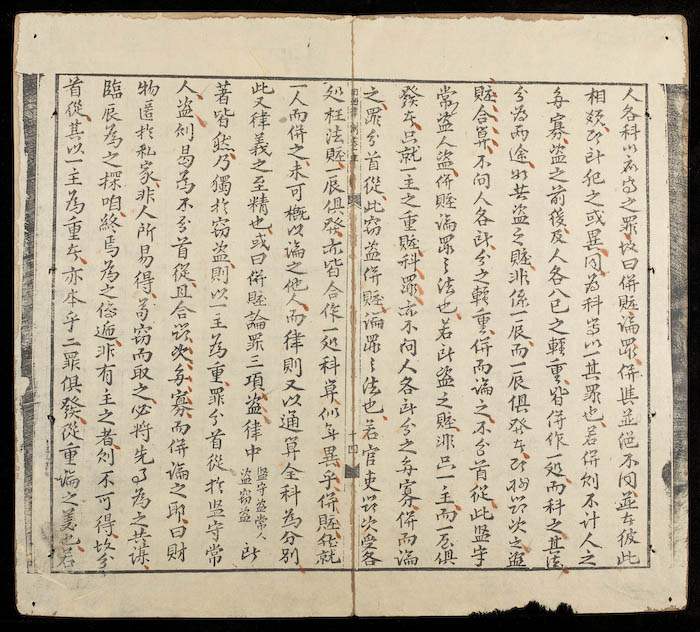 人各科以所得之罪故曰併贓論罪併與並絕不同並在彼此
相須所犯之或異同為科等以一其罪也若併則不計人之
多寡盜之前後及人各入己之輕重皆併作一処而科之其法
分為兩途如共盜之贓非係一辰而一辰俱發在以次之盜
贓合算不问人各所分之輕重併而論之不分首從此监守
常盗人盗併贓論罪之法也若所盗之贓非只一主而一辰俱
發在只就一主之重贓科罪亦不问人各所分之多寡併而論
之罪分首從此窃盗併贓論罪之法也若官吏以次受各
十四
処枉法贓一辰俱發亦皆合作一処科算似無異乎併贓然就
一人而併之未可概以論之他人而律則又以通算全科為分别
此又律義之至精也或曰併贓論罪三項盗律中监守盗常人盗窃盗所
著皆然乃獨於窃盗則以一主為重罪分首從於监守常
人盗則曷為不分首從且合以次多寡而併論之耶曰財
物匿於私家非人所易得苟窃而取之必将先为之共谋
臨辰為之探哨終焉為之傳遞非有主之者則不可得故分
首從其以一主為重在亦本乎二罪俱發從重論之義也若